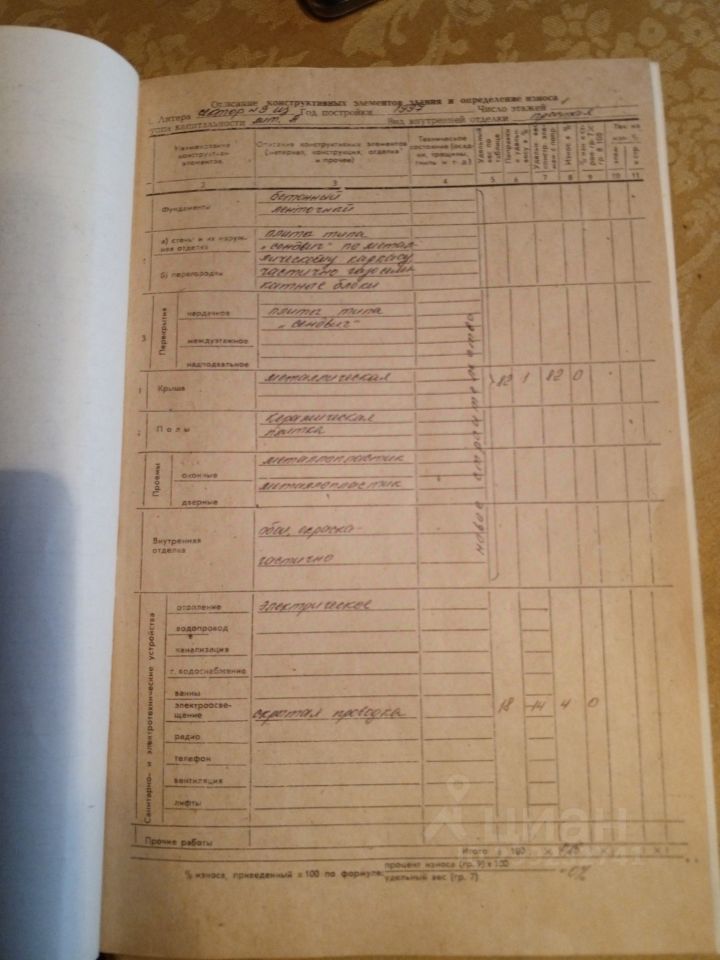 Описание конструктивных элементов здания и определение износа
Литера сектор №3 из Год постройки 1997 Число этажей 1
типа капитальности лит. А Вид внутренней отделки простая
Наименование конструктивн. элементов
Описание конструктивных элементов (материал, конструкция, отделка и прочее)
Техническое состояние (осадки, трещины, гниль и т. д.)
Удельный вес по таблице
Износ в %
2 3 4 5 6 7 8 9 10 11
Фундаменты
бетонный
ленточный
а) стены и их наружная отделка
плита типа
„сендвич" по метал-
лическому каркасу
б) перегородки
частично газосили-
катные блоки
3 Перекрытия
чердачное
плита типа
„сендвич"
междуэтажное
надподвальное
Крыша
металлическая
82 1 82 0
Полы
керамическая
плитка
Проемы
оконные
металлопластик
дверные
металлопластик
новое строительство
Внутренняя отделка
обои, окраска-
частично
Санитарно- и электротехнические устройства
отопление
электрическое
водопровод
канализация
г. водоснабжение
ванны
электроосвещение
скрытая проводка
18 -14 4 0
радио
телефон
вентиляция
лифты
Прочие работы
Итого 100
% износа, приведенный к 100 по формуле:
процент износа (гр. 9) х 100
удельный вес (гр. 7)
=0%
циан